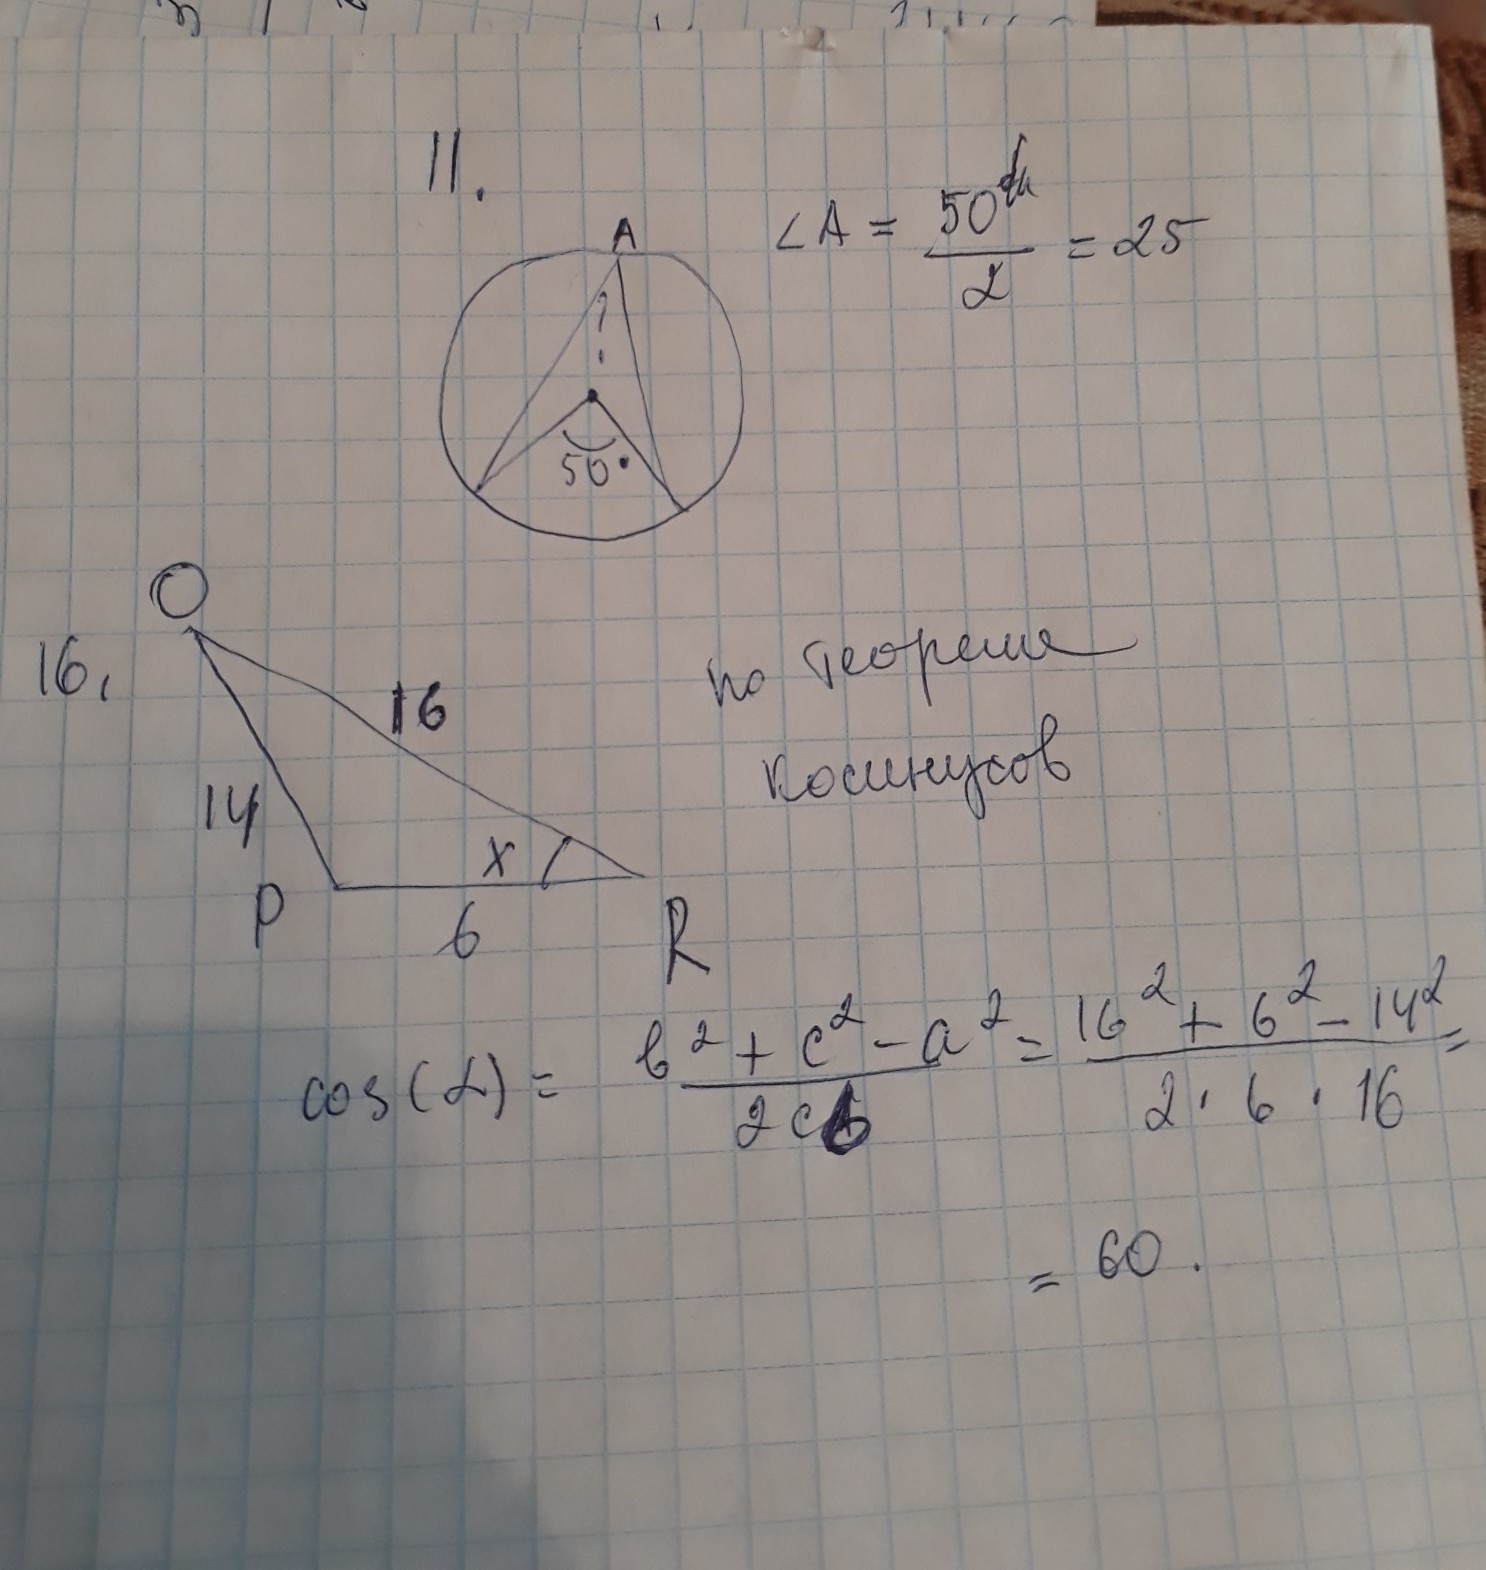 11.
A
∠A = 50/2 = 25
?
50°
O
16.
16
14
x
P
6
R
по теореме
косинусов
cos(α) = b² + c² - a² / 2cb = 16² + 6² - 14² / 2 · 6 · 16 =
= 60.